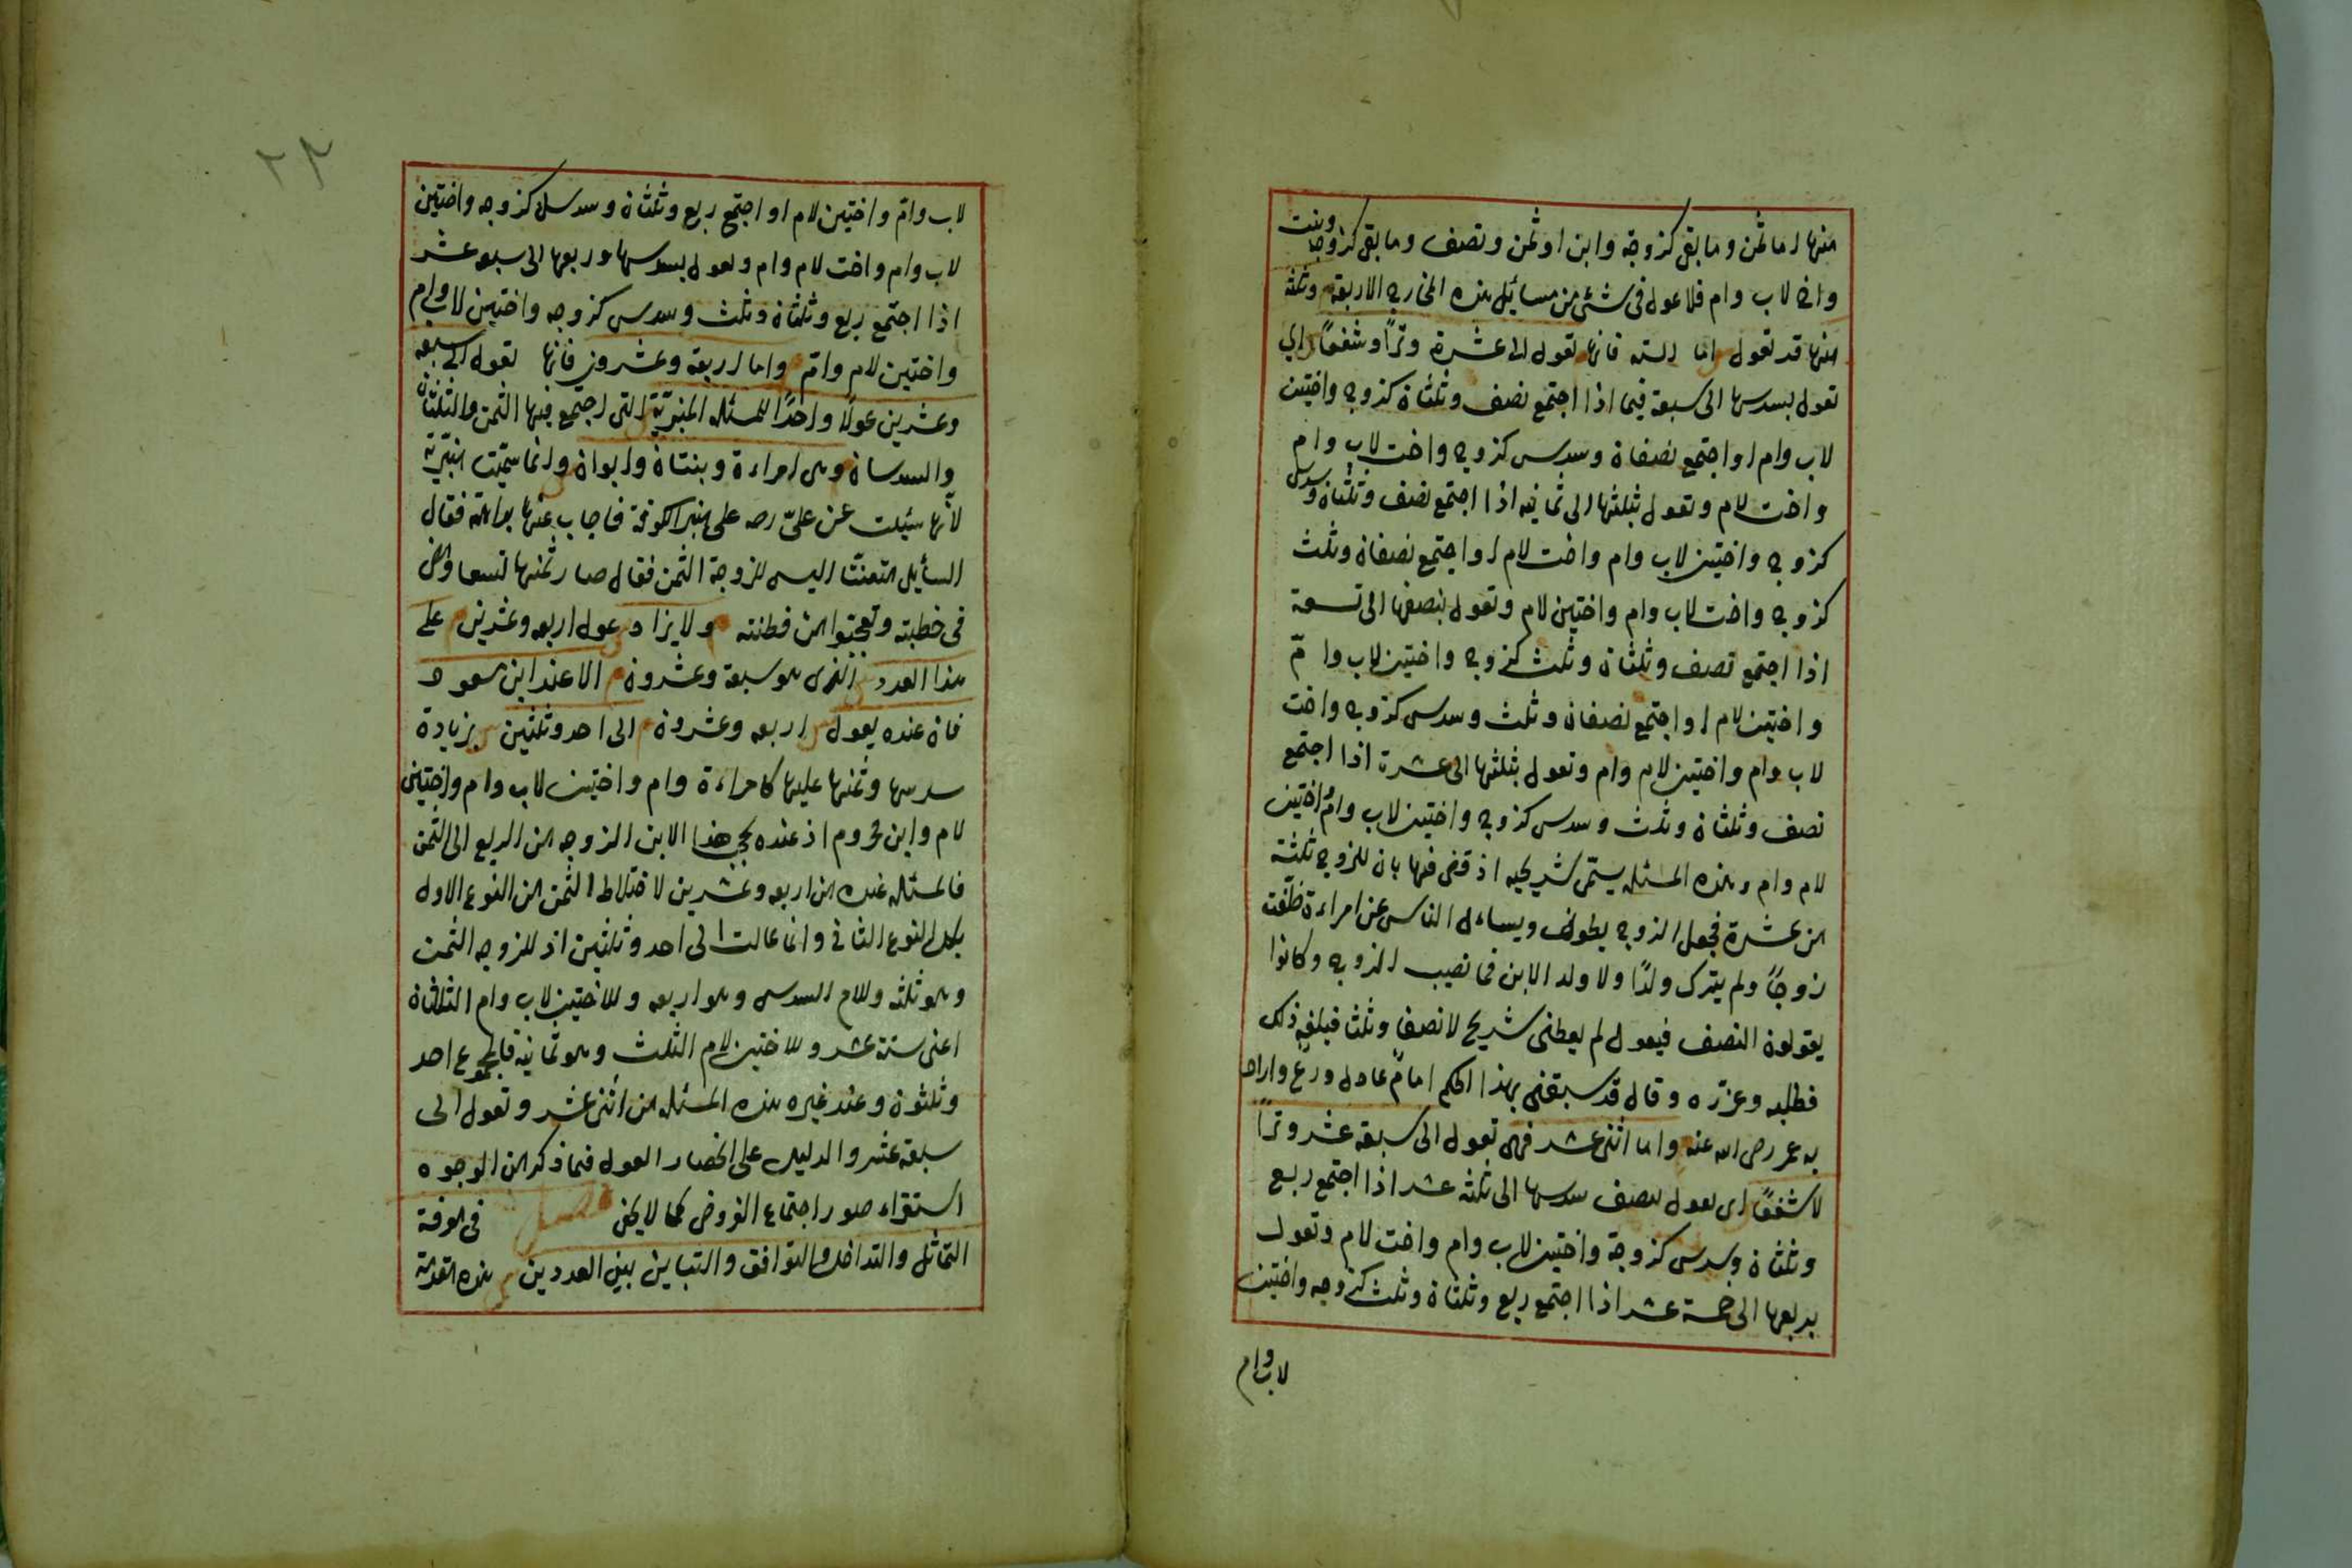 منها اما ثمن وما بقى كزوجة وابن او ثمن ونصف وما بقى كزوجة وبنت
واخ لاب وام فلا عول فى شئ من مسائل هذه المخارج الاربعة وثلثة
منها قد تعول اما الستة فانها تعول الى عشرة وترًا وشفعًا اي
تعول بسدسها الى سبعة فيما اذا اجتمع نصف وثلثان كزوج واختين
لاب وام او اجتمع نصفان وسدس كزوج واخت لاب وام
واخت لام وتعول بثلثها الى ثمانيه اذا اجتمع نصف وثلثان وسدس
كزوج واختين لاب وام واخت لام او اجتمع نصفان وثلث
كزوج واخت لاب وام واختين لام وتعول بنصفها الى تسعة
اذا اجتمع نصف وثلثان وثلث كزوج واختين لاب وامّ
واختين لام او اجتمع نصفان وثلث وسدس كزوج واخت
لاب وام واختين لام وام وتعول بثلثيها الى عشرة اذا اجتمع
نصف وثلثان وثلث وسدس كزوج واختين لاب وام واختين
لام وام وهذه المسئله يسمّى شريحيه اذ قضى فيها بان للزوج ثلثة
من عشرة فجعل الزوج يطوف ويساءل الناس عن امراءة خلّفت
زوجًا ولم يترك ولدًا ولا ولد الابن فما نصيب الزوج وكانوا
يقولون النصف فيقول لم يعطنى شريح لا نصفا وثلثا فبلغه ذلك
فطلبه وعزّره وقال قد سبقنى بهذا الحكم امامٌ عادل ورعٌ واراد
به عمر رضى الله عنه واما اثنى عشر فهى تعول الى سبعة عشر وترًا
لا شفعًا اى تعول بنصف سدسها الى ثلثه عشر اذا اجتمع ربع
وثلثان وسدس كزوجة واختين لاب وام واخت لام وتعول
بربعها الى خمسة عشر اذا اجتمع ربع وثلثان وثلث كزوجه واختين
لاب وام
٢٣
لاب وامّ واختين لام او اجتمع ربع وثلثان وسدس كزوجه واختين
لاب وام واخت لام وام وتعول بسدسها وربعها الى سبعه عشر
اذا اجتمع ربع وثلثان وثلث وسدس كزوجه واختين لاب وام
واختين لام وامّ واما اربعة وعشرون فانها تعول الى سبعه
وعشرين عولًا واحدًا للمسئله المنبريّة التى اجتمع فيها الثمن والثلثان
والسدسان وهى امراءة وبنتان وابوان وانما سمّيت منبريّة
لانّها سئيلت عن علىّ رضه على منبر الكوفة فاجاب عنها بداهة فقال
السآيل متعنتا اليس للزوجة الثمن فقال صار ثمنها تسعا ومضى
فى خطبته وتعجّبوا من فطنته ولا يزاد عول اربعه وعشرين على
هذا العدد الذى هو سبعة وعشرون الا عند ابن مسعود
فان عنده يعول اربعه وعشرون الى احد وثلثين بزيادة
سدسها وثمنها عليها كامراءة وام واختين لاب وام واختين
لام وابن محروم اذ عنده يحجب هذا الابن الزوجه من الربع الى الثمن
فالمسئله عنده من اربعه وعشرين لاختلاط الثمن من النوع الاول
بكل النوع الثانى وانما عالت الى احد وثلثين اذ للزوجه الثمن
وهو ثلثه وللام السدس وهو اربعه وللاختين لاب وام الثلثان
اعنى ستة عشر وللاختين لام الثلث وهو ثمانية فالمجموع احد
وثلثون وعند غيره هذه المسئله من اثنى عشر وتعول الى
سبعة عشر والدليل على انحصار العول فيما ذكر من الوجوه
استقراء صور اجتماع الفروض كما لا يخفى فصل فى معرفة
التماثل والتداخل والتوافق والتباين بين العددين هذه مقدمة